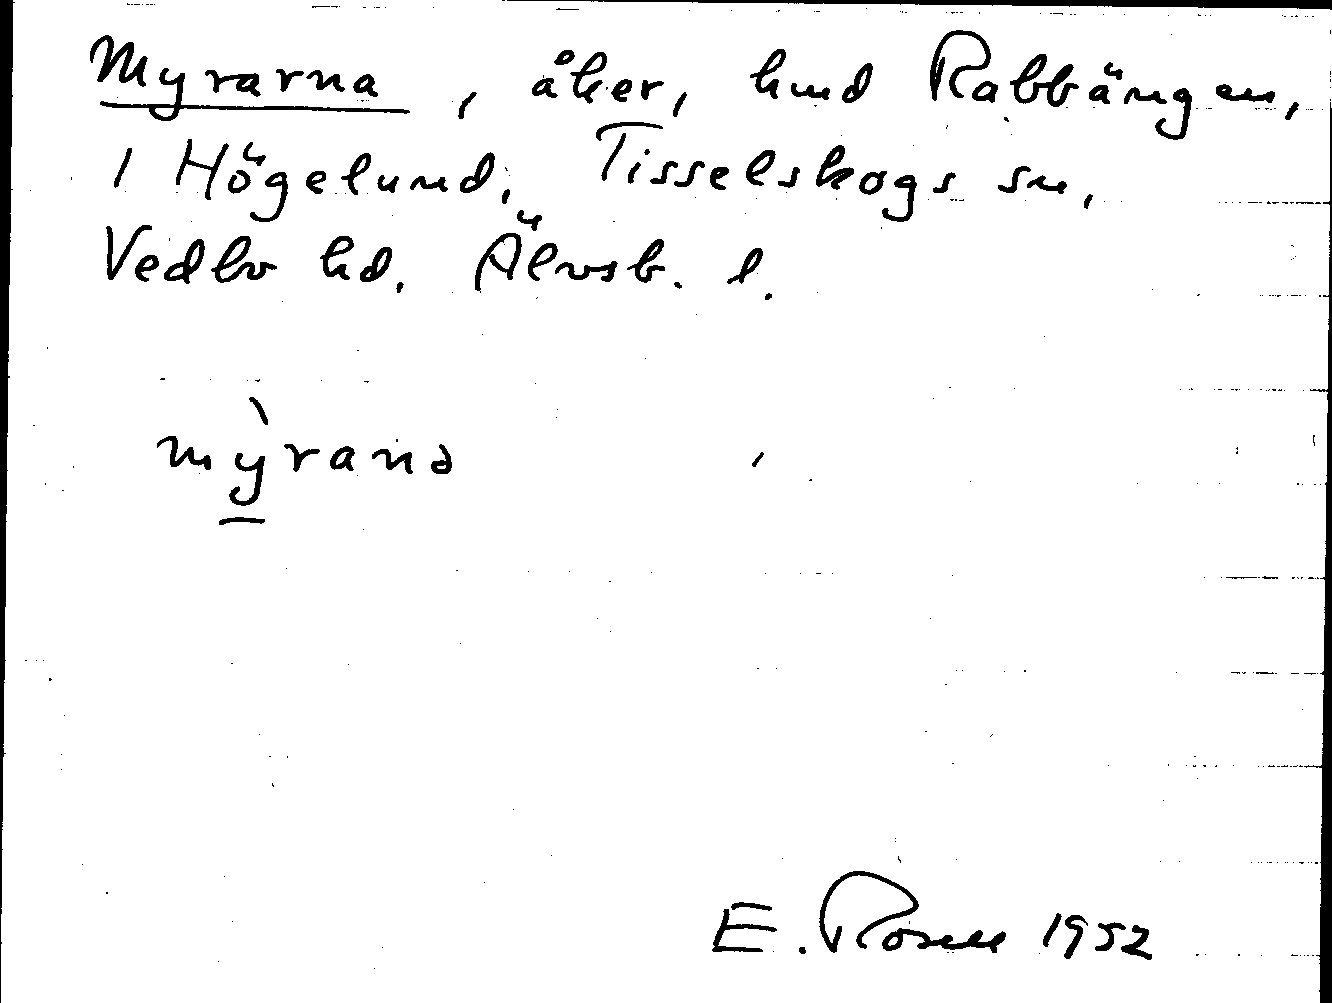 Myrarna, åker, hmd Rabbängen,
1 Högelund, Tisselskogs sn,
Vedbo hd. Älvsb. l.
mỳranə
E. Rosell 1952